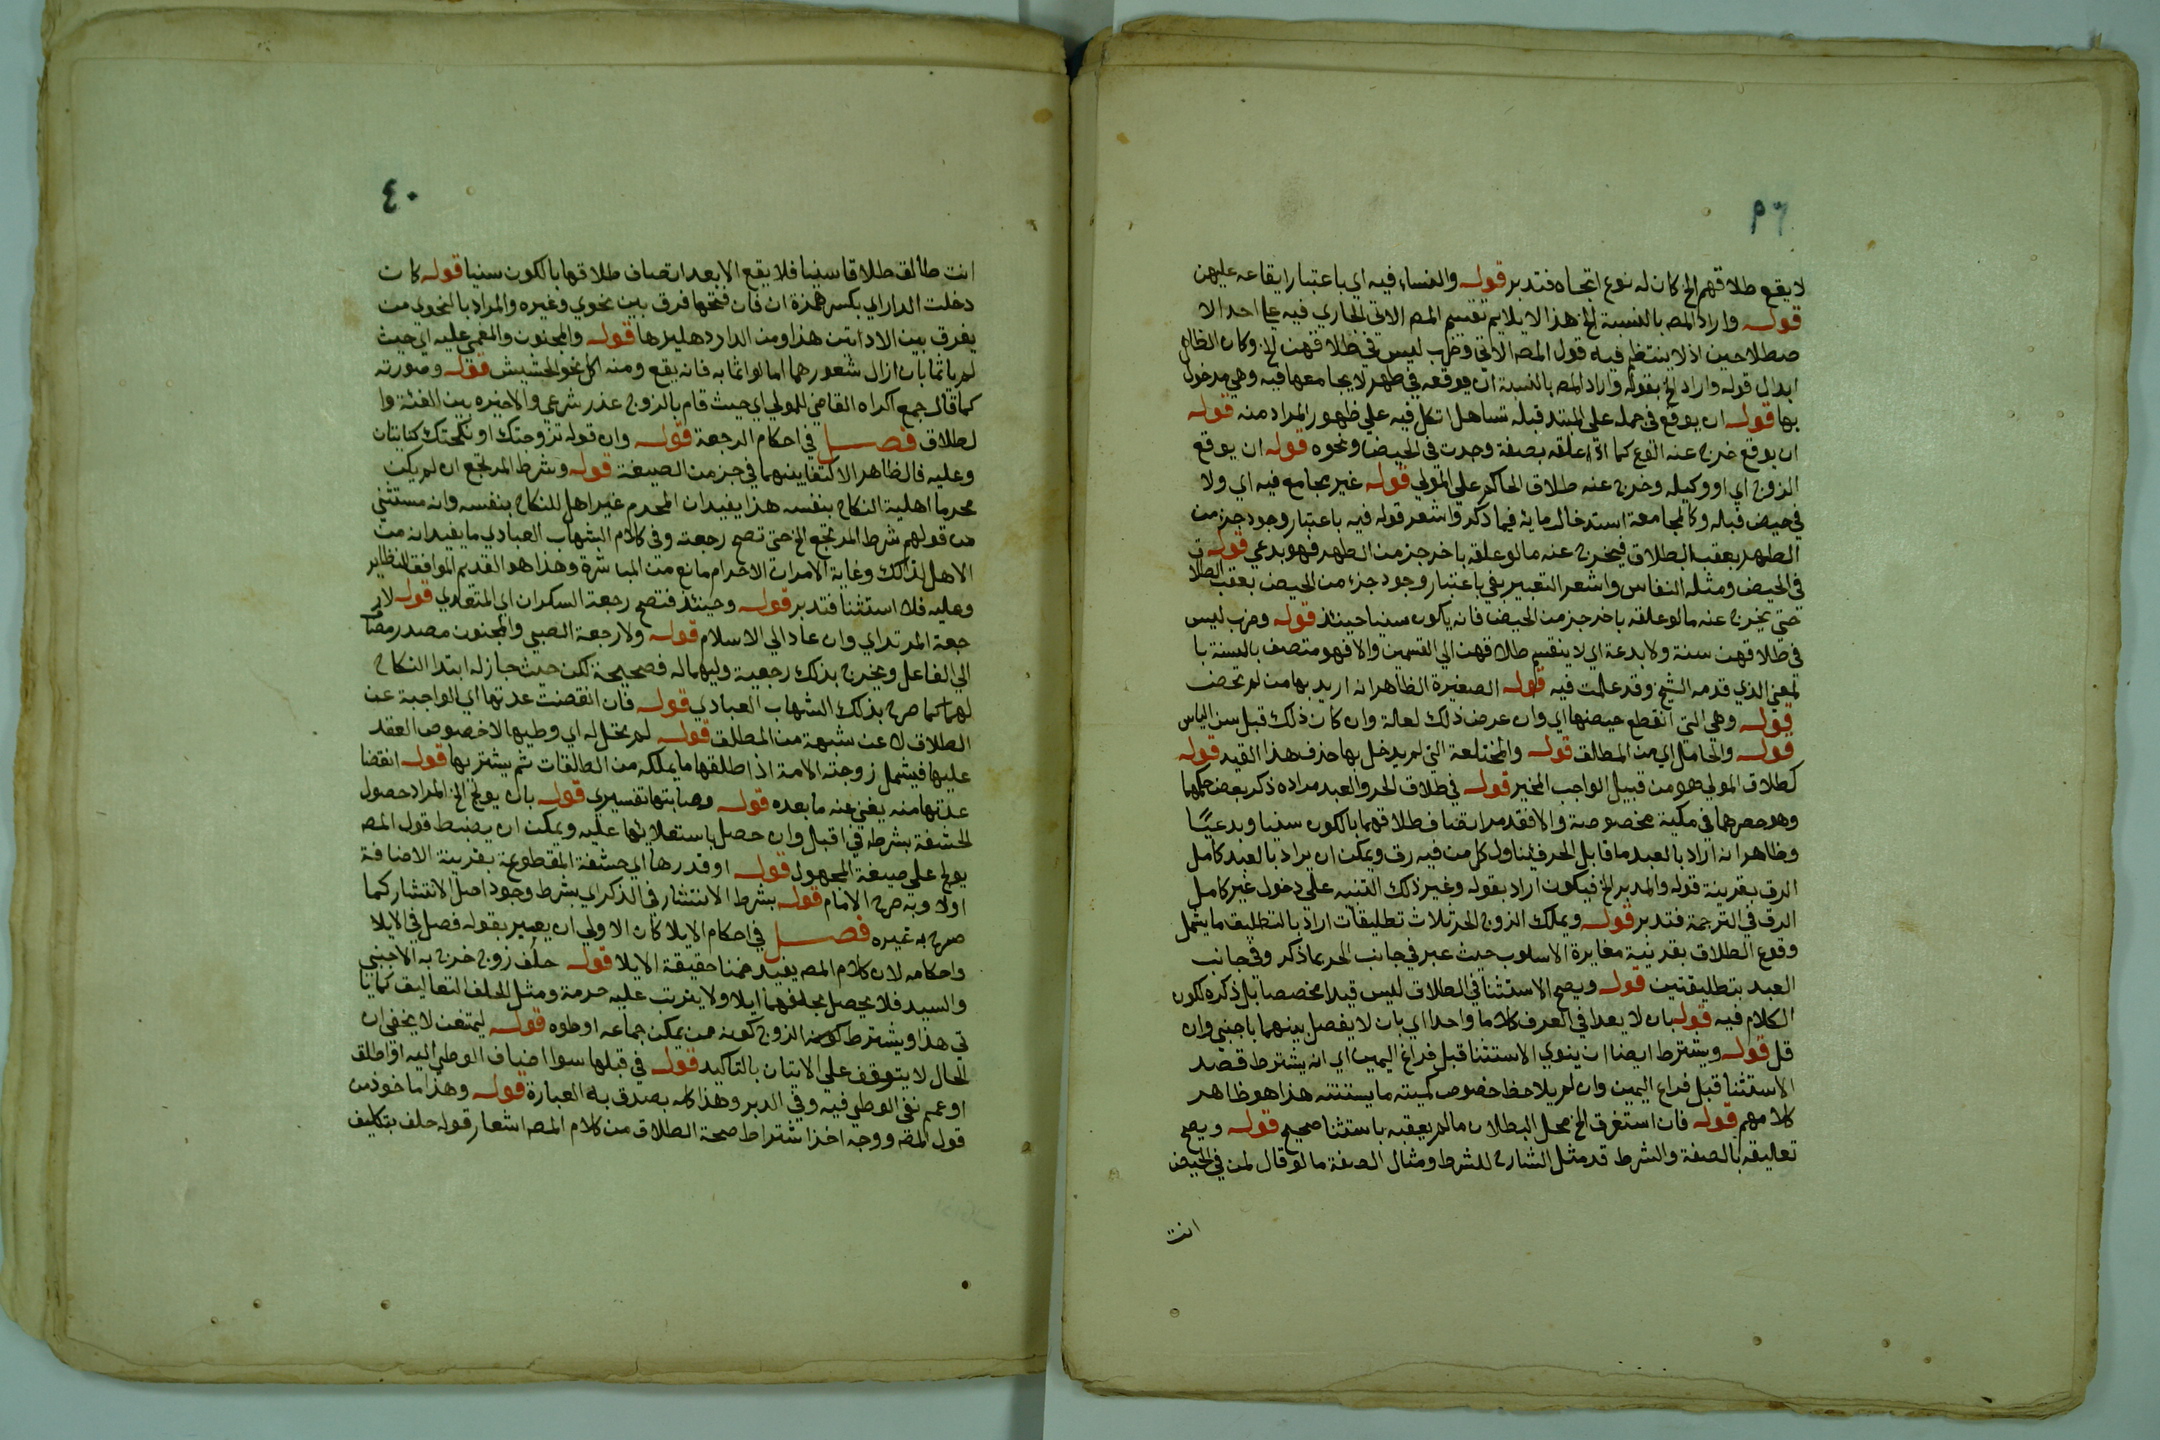 ٣٩
لا يقع طلاقهم الخ كان له نوع اتجاه فتدبر قوله والنساء فيه اي باعتبار ايقاعه عليهن
قوله واراد المص بالنسبة الخ هذا لا يلايم تقسيم المص الاتي الجاري فيه علي احد الا
صطلاحين اذ لا ينتظم فيه قول المص الاتي وضرب ليس في طلاقهن الخ وكان الظاهر
ابدال قوله واراد الخ بقوله واراد المص بالنسبة ان يوقعه في طهر لا يجامعها فيه وهي مدخول
بها قوله ان يوقع في حمله علي المبتد قبله تساهل اتكل فيه علي ظهور المراد منه قوله
ان يوقع خرج عنه الوقع كما اذا علقه بصفة وجدت في الحيض ونحوه قوله ان يوقع
الزوج اي او وكيله وخرج عنه طلاق الحاكم علي المولي قوله غير مجامع فيه اي ولا
في حيض قبله وكالمجامعة استدخال مايه فيما ذكر واشعر قوله فيه باعتبار وجود جز من
الطهر يعقب الطلاق فيخرج عنه ما لو علقه باخر جز من الطهر فهو بدعي قوله
في الحيض ومثله النفاس واشعر التعبير بفي باعتبار وجود جزء من الحيض يعقب الطلاق
حتي يخرج عنه ما لو علقه باخر جز من الحيض فانه يكون سنيا حينئذ قوله وضرب ليس
في طلاقهن سنة ولا بدعة اي لا ينقسم طلاقهن الي القسمين والا فهو متصف بالسنة با
لمعني الذي قدمه الشيخ وقد علمت فيه قوله الصغيرة الظاهر انه اريد بها من لم تحض
قوله وهي التي انقطع حيضها اي وان عرض ذلك لعلة وان كان ذلك قبل سن الياس
قوله والحامل اي من المطلق قوله والمختلعة التي لم يدخل بها حذف هذا القيد قوله
كطلاق المولي هو من قبيل الواجب المخير قوله في طلاق الحر والعبد مراده ذكر بعض حكمها
وهو حصرهما في مكية مخصوصة والا فقد مر اتصاف طلاقهما بالكون سنيا وبدعيًا
وظاهر انه اراد بالعبد ما قابل الحر فيتناول كل من فيه رق ويمكن ان يراد بالعبد كامل
الرق بقرينة قوله والمدبر الخ فيكون اراد بقوله وغير ذلك التنبيه علي دخول غير كامل
الرق في الترجمة فتدبر قوله ويملك الزوج الحر ثلاث تطليقات اراد بالتطليق ما يشمل
وقوع الطلاق بقرينة مغايرة الاسلوب حيث عبر في جانب الحر بما ذكر وفي جانب
العبد بتطليقتين قوله ويصح الاستثنا في الطلاق ليس قيدا مخصصا بل ذكره لكون
الكلام فيه قوله بان لا يعدا في العرف كلاما واحدا اي بان لا يفصل بينهما باجنبي وان
قل قوله ويشترط ايضا ان ينوي الاستثنا قبل فراغ اليمين اي انه يشترط قصد
الاستثنا قبل فراغ اليمين وان لم يلاحظ خصوص كميته ما يستثنه هذا هو ظاهر
كلامهم قوله فان استغرق الخ محل البطلان ما لم يعقبه باستثنا صحيح قوله ويصح
تعليقه بالصفة والشرط قد مثل الشارح للشرط ومثال الصفة ما لو قال لمن في الحيض
انت
٤٠
انت طالق طلاقا سنيا فلا يقع الا بعد اتصاف طلاقها بالكون سنيا قوله كان
دخلت الدار اي بكسر همزة ان فان فتحها فرق بين نحوي وغيره والمراد بالنحوي من
يفرق بين الاداتين هذا ومن الدار دهليزها قوله والمجنون والمغمي عليه اي حيث
لم ياثما بان ازال شعورهما اما لو اثما به فانه يقع ومنه اكل نحو الحشيش قوله وصورته
كما قال جمع اكراه القاضي للمولي اي حيث قام بالزوج عذر شرعي والا خيره بين الفئة وا
لطلاق فصل في احكام الرجعة قوله وان قوله تزوجتك او نكحتك كنايتان
وعليه فالظاهر الاكتفا بنيتهما في جز من الصيغة قوله وشرط المرتجع ان لم يكن
محرما اهلية النكاح بنفسه هذا يفيد ان المحرم غير اهل للنكاح بنفسه وانه مستثني
من قولهم شرط المرتجع الخ حتي تصح رجعته وفي كلام الشهاب العبادي ما يفيد انه من
الاهل لذلك وغاية الامر ان الاحرام مانع من المباشرة وهذا هو القديم الموافق للنظاير
وعليه فلا استثنا فتدبر قوله وحينئذ فتصح رجعة السكران اي المتعدي قوله لا ر
جعة المرتد اي وان عاد الي الاسلام قوله ولا رجعة الصبي والمجنون مصدر مضاف
الي الفاعل ويخرج بذلك رجعية وليهما له فصحيحة لكن حيث جاز له ابتدا النكاح
لهما كما صرح بذلك الشهاب العبادي قوله فان انقضت عدتها اي الواجبة عن
الطلاق لا عن شبهة من المطلق قوله لم يحل له اي وطيها الا خصوص العقد
عليها فيشمل زوجته الامة اذا طلقها ما يملكه من الطلقات ثم يشتريها قوله انقضا
عدتها منه يغني عنه ما بعده قوله وصابتها تفسيري قوله بان يولج الخ المراد حصول
الحشفة بشرطه في اقبل وان حصل باستعلائها عليه ويمكن ان يضبط قول المص
يولج علي صيغة المجهول قوله او قدرها اي حشفة المقطوعة بقرينة الاضافة
اولا وبه صرح الامام قوله بشرط الانتشار في الذكر اي بشرط وجود اصل الانتشار كما
صرح به غيره فصل في احكام الايلا كان الاولي ان يعبر بقوله فصل في الايلا
واحكامه لان كلام المص يفيد ضمنا حقيقة الايلا قوله حلف زوج خرج به الاجنبي
والسيد فلا يحصل بحلفهما ايلا ولا يترتب عليه حرمة ومثل الحلف التعاليق كما يا
تي هذا ويشترط كون الزوج كونه ممن يمكن جماعه او طوه قوله ليمتنعن لا يخفي ان
الحال لا يتوقف علي الاتيان بالتاكيد قوله في قبلها سوا اضاف الوطي اليه او اطلق
او عمم نفي الوطي فيه وفي الدبر وهذا كله يصدق به العبارة قوله وهذا ماخوذ من
قول المص ووجه اخذ اشتراط صحة الطلاق من كلام المص اشعار قوله حلف بتكليف